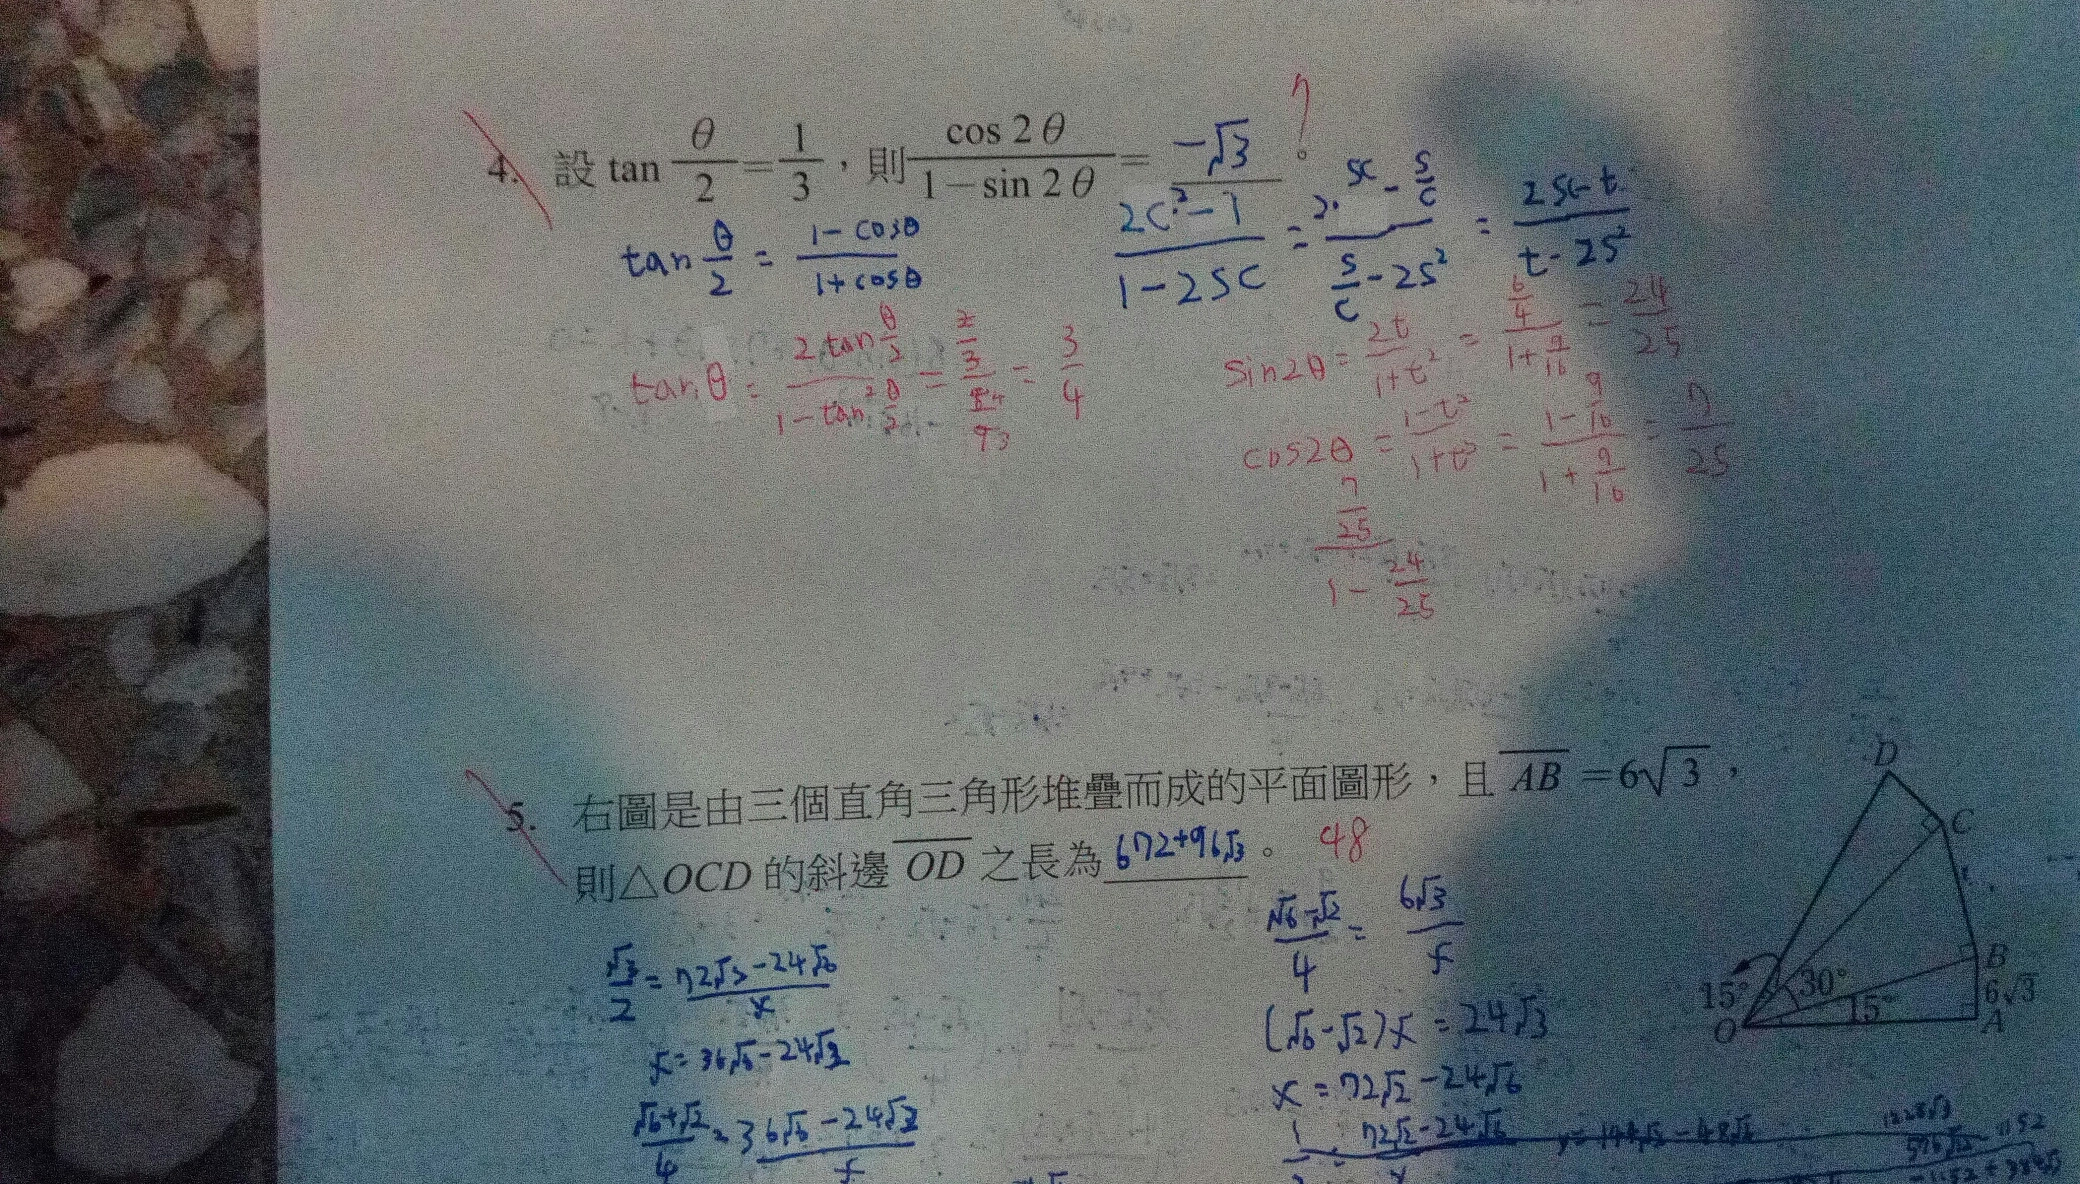 4. 設 tan θ/2 = 1/3，則 cos 2θ / 1－sin 2θ = －√3 7。
tan θ/2 = 1－cosθ / 1+cosθ
2c²－1 / 1－2sc = 2·sc－s/c / s/c－2s² = 2sc－t / t－2s²
tanθ = 2tan θ/2 / 1－tan² θ/2 = 2/3 / 8/9 = 3/4
sin2θ = 2t / 1+t² = 6/4 / 1+9/16 = 24/25
cos2θ = 1－t² / 1+t² = 1－9/16 / 1+9/16 = 7/25
7/25 / 1－24/25
5. 右圖是由三個直角三角形堆疊而成的平面圖形，且 AB = 6√3，
則△OCD 的斜邊 OD 之長為 672+96√3。 48
D
C
B
6√3
A
O
15°
30°
15°
√6－√2 / 4 = 6√3 / x
(√6－√2)x = 24√3
x = 72√2－24√6
√3/2 = 72√2－24√6 / x
x = 36√6－24√3
√6+√2 / 4 = 36√6－24√2 / x
72√2－24√6